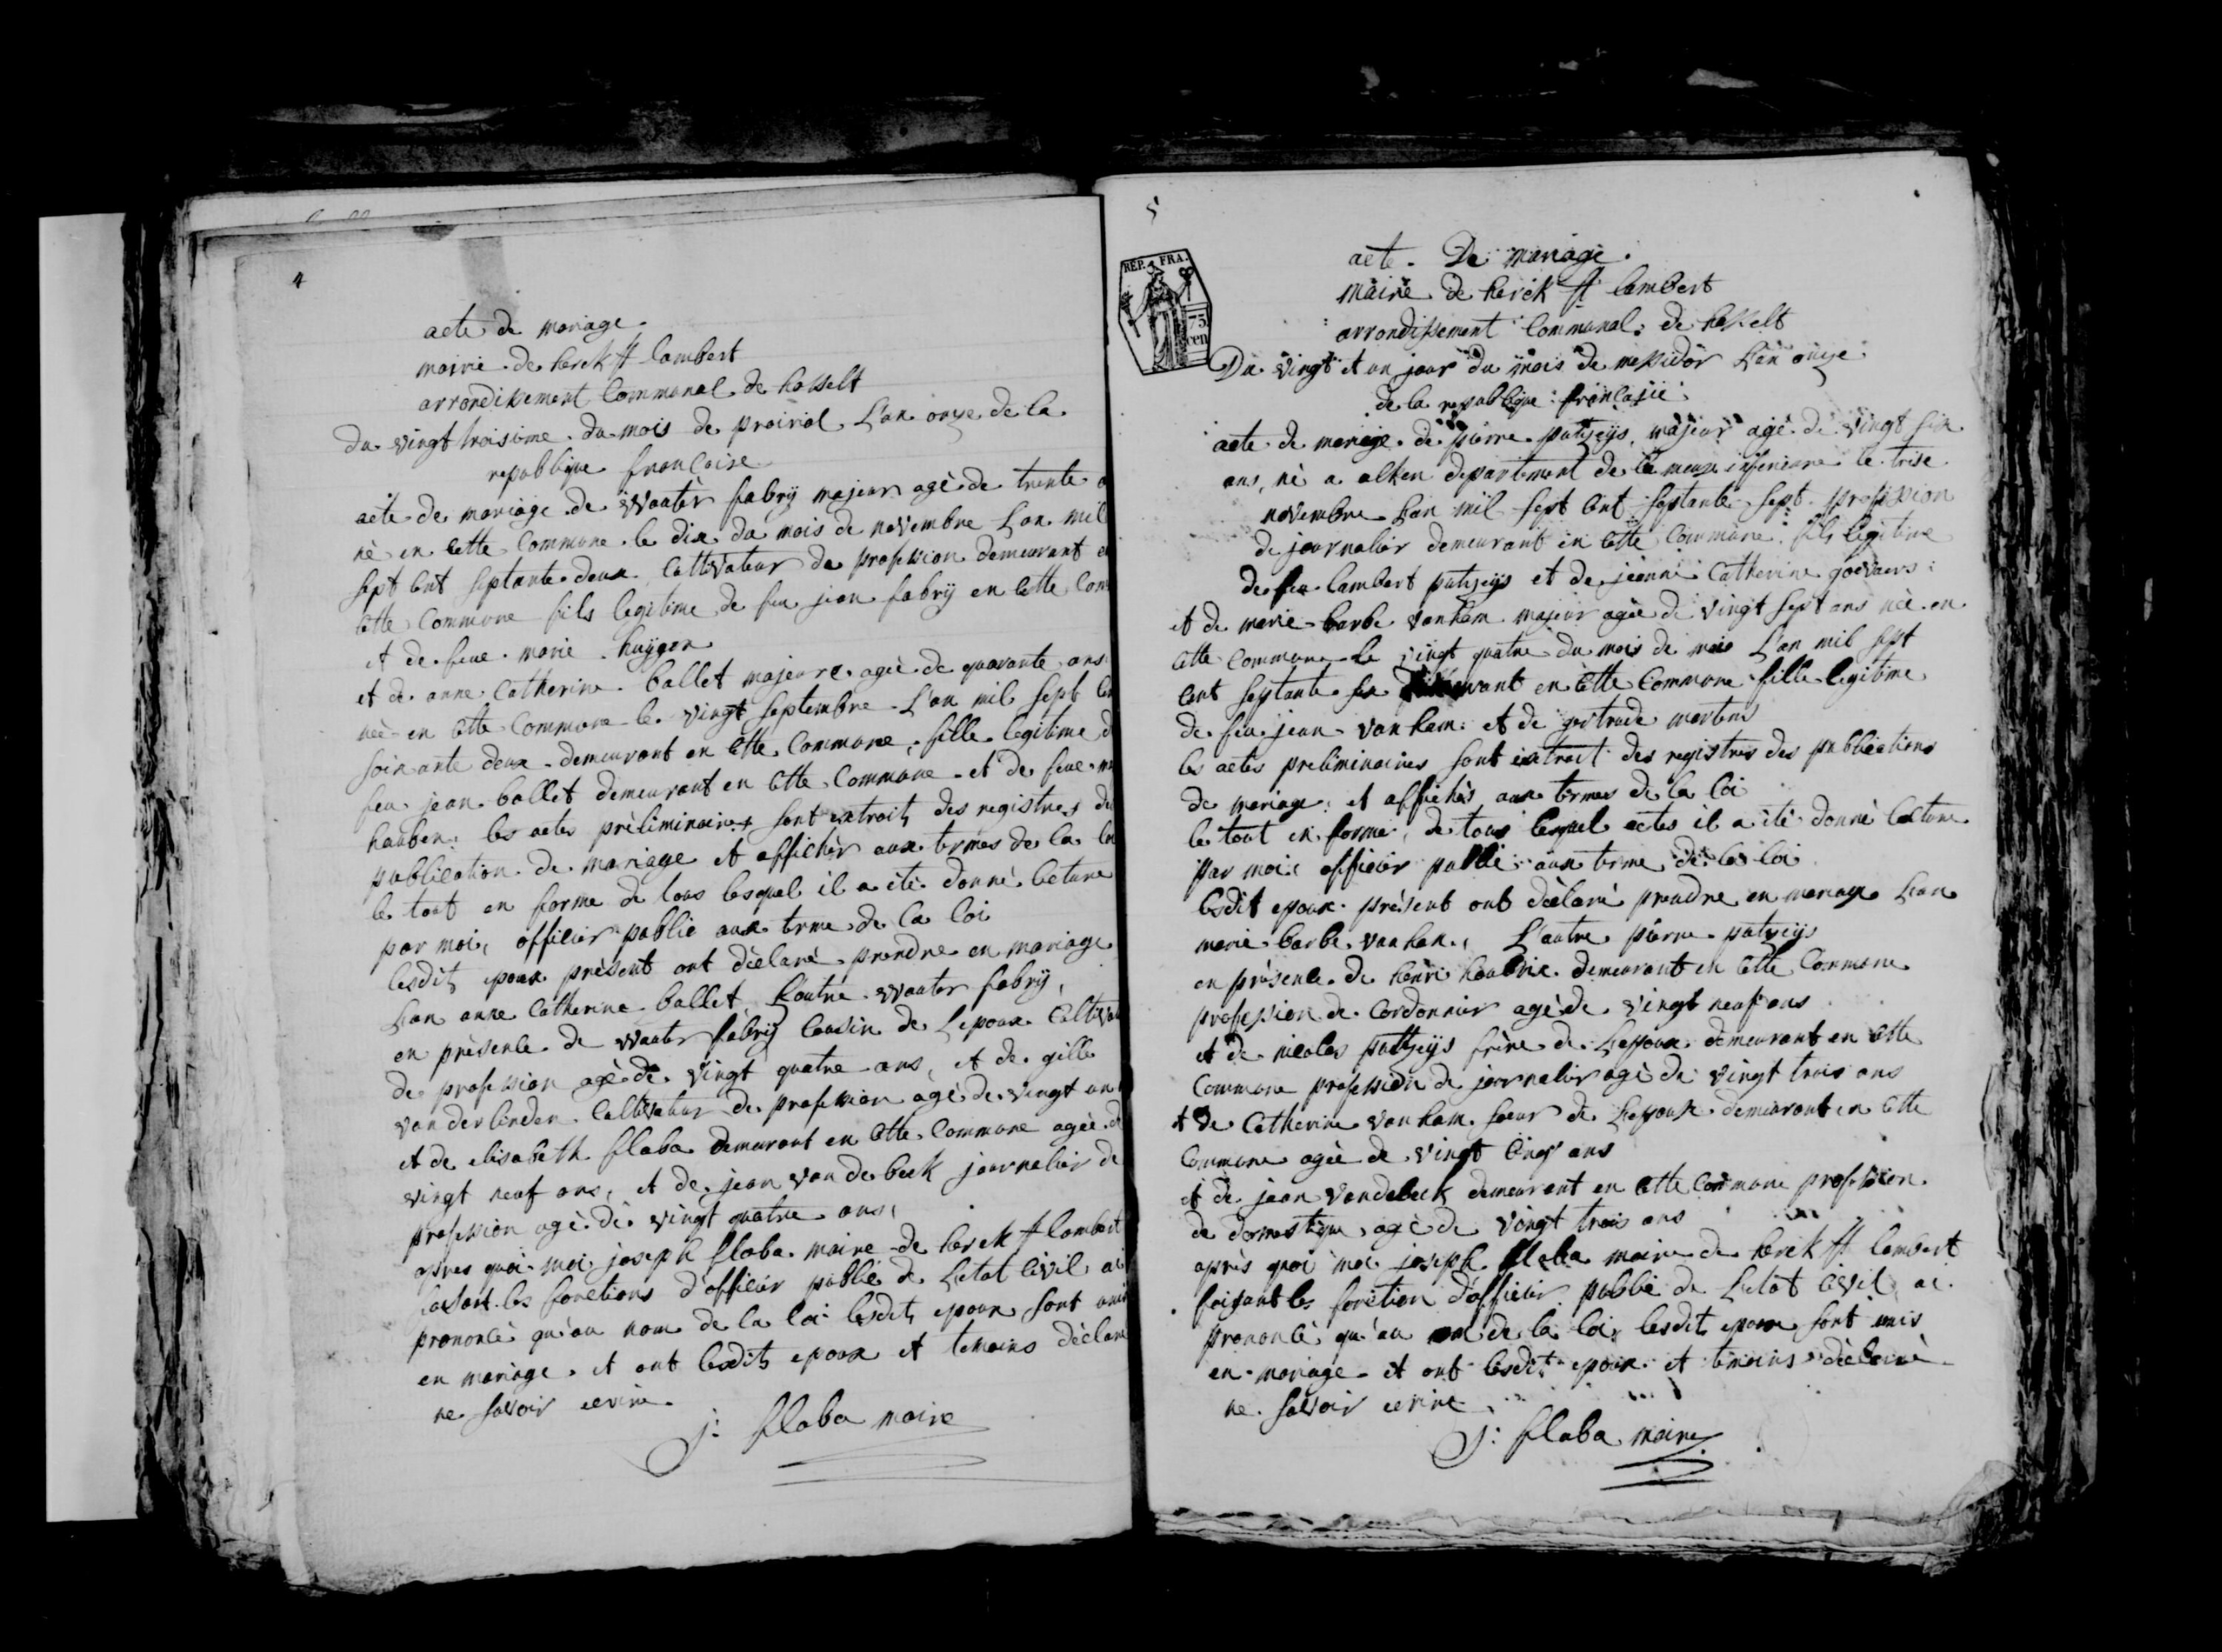 4
acte de mariage.
mairie de herck st lambert
arrondissement Communal de hasselt
du vingt troisième du mois de prairial L'an onze de la
republique francaise
acte de mariage de Waater fabrÿ majeur agè de trente
nè en Cette Commune le dix du mois de novembre L'an mil
sept Cent septante deux Cultivateur de profession demeurant
Cette Commune fils legitime de feu jean fabrÿ en Cette Com
et de feue marie huÿgen
et de anne Catherine ballet majeure ageè de quarante ans
neè en Cette Commune le vingt septembre L'an mil sept Cen
soixante deux demeurant en Cette Commune, fille legitime d
feu jean ballet demeurant en Cette Commune et de feue
hauben: les actes prèliminaires sont extraits des registres de
publication de mariage et affichès aux termes de la loi
le tout en forme de tous lesquel il a étè donnè lecture
par moi, officier public aux terme de la loi
lesdits epoux prèsent ont dèclarè prendre en mariage
L'un anne Catherine ballet L'autre Waater fabrÿ,
en prèsence de Waater fabrÿ Cousin de L'epoux Cultiva
de profession agè de vingt quatre ans, et de gille
vanderlinden Cultivateur de profession agè de vingt un
et de elisabeth flaba demeurant en Cette Commune ageè d
vingt neuf ans, et de jean van de beek journalier de
profession agè de vingt quatre ans,
apres quoi moi joseph flaba maire de herck st lambert
faisant les fonctions d'officier public de L'etat Civil ai
prononcè qu'au nom de la loi lesdits epoux sont unis
en mariage. et ont lesdits epoux et temoins dèclarè
ne savoir ecrire
j: flaba maire
5
REP. FRA.
75
cen
acte De mariage.
Mairie de herck st lambert
arrondissement Communal de hasselt
Du vingt et un jour du mois de messidor L'an onze
de la republique francaise
acte de mariage de pierre putzeÿs, majeur agè de vingt six
ans, nè a alken departement de la meuse inferieure le treise
novembre L'an mil sept Cent septante sept profession
de journalier demeurant en Cette Commune fils legitime
de feu lambert putzeÿs et de jeanne Catherine goevaers
et de marie barbe vanham majeur ageè de vingt sept ans neè en
Cette Commune le vingt quatre du mois de mai L'an mil sept
Cent septante six demeurant en Cette Commune fille legitime
de feu jean van ham et de gertrude martens
les actes preliminaires sont extrait des registres des publications
de mariage et affichès aux termes de la loi
le tout en forme, de tous lesquel actes il a étè donnè lecture
par moi officier public aux terme de la loi
lesdit epoux prèsent ont dèclarè prendre en mariage L'un
marie barbe vanham, L'autre pierre putzeÿs
en prèsence de henri demeurant en Cette Commune
profession de Cordonnier agè de vingt neuf ans
et de nicolas putzeÿs frère de L'epoux demeurant en Cette
Commune profession de journalier agè de vingt trois ans
et de Catherine vanham soeur de L'epoux demeurant en Cette
Commune ageè de vingt Cinq ans
et de jean vandebeek demeurant en Cette Commune profession
de domestique, agè de vingt trois ans
après quoi moi joseph flaba maire de herck st lambert
faisant les fonction d'officier public de L'etat Civil ai
prononcè qu'au nom de la loi, lesdit epoux sont unis
en mariage et ont lesdit epoux et temoins dèclarè
ne savoir ecrire
j: flaba maire